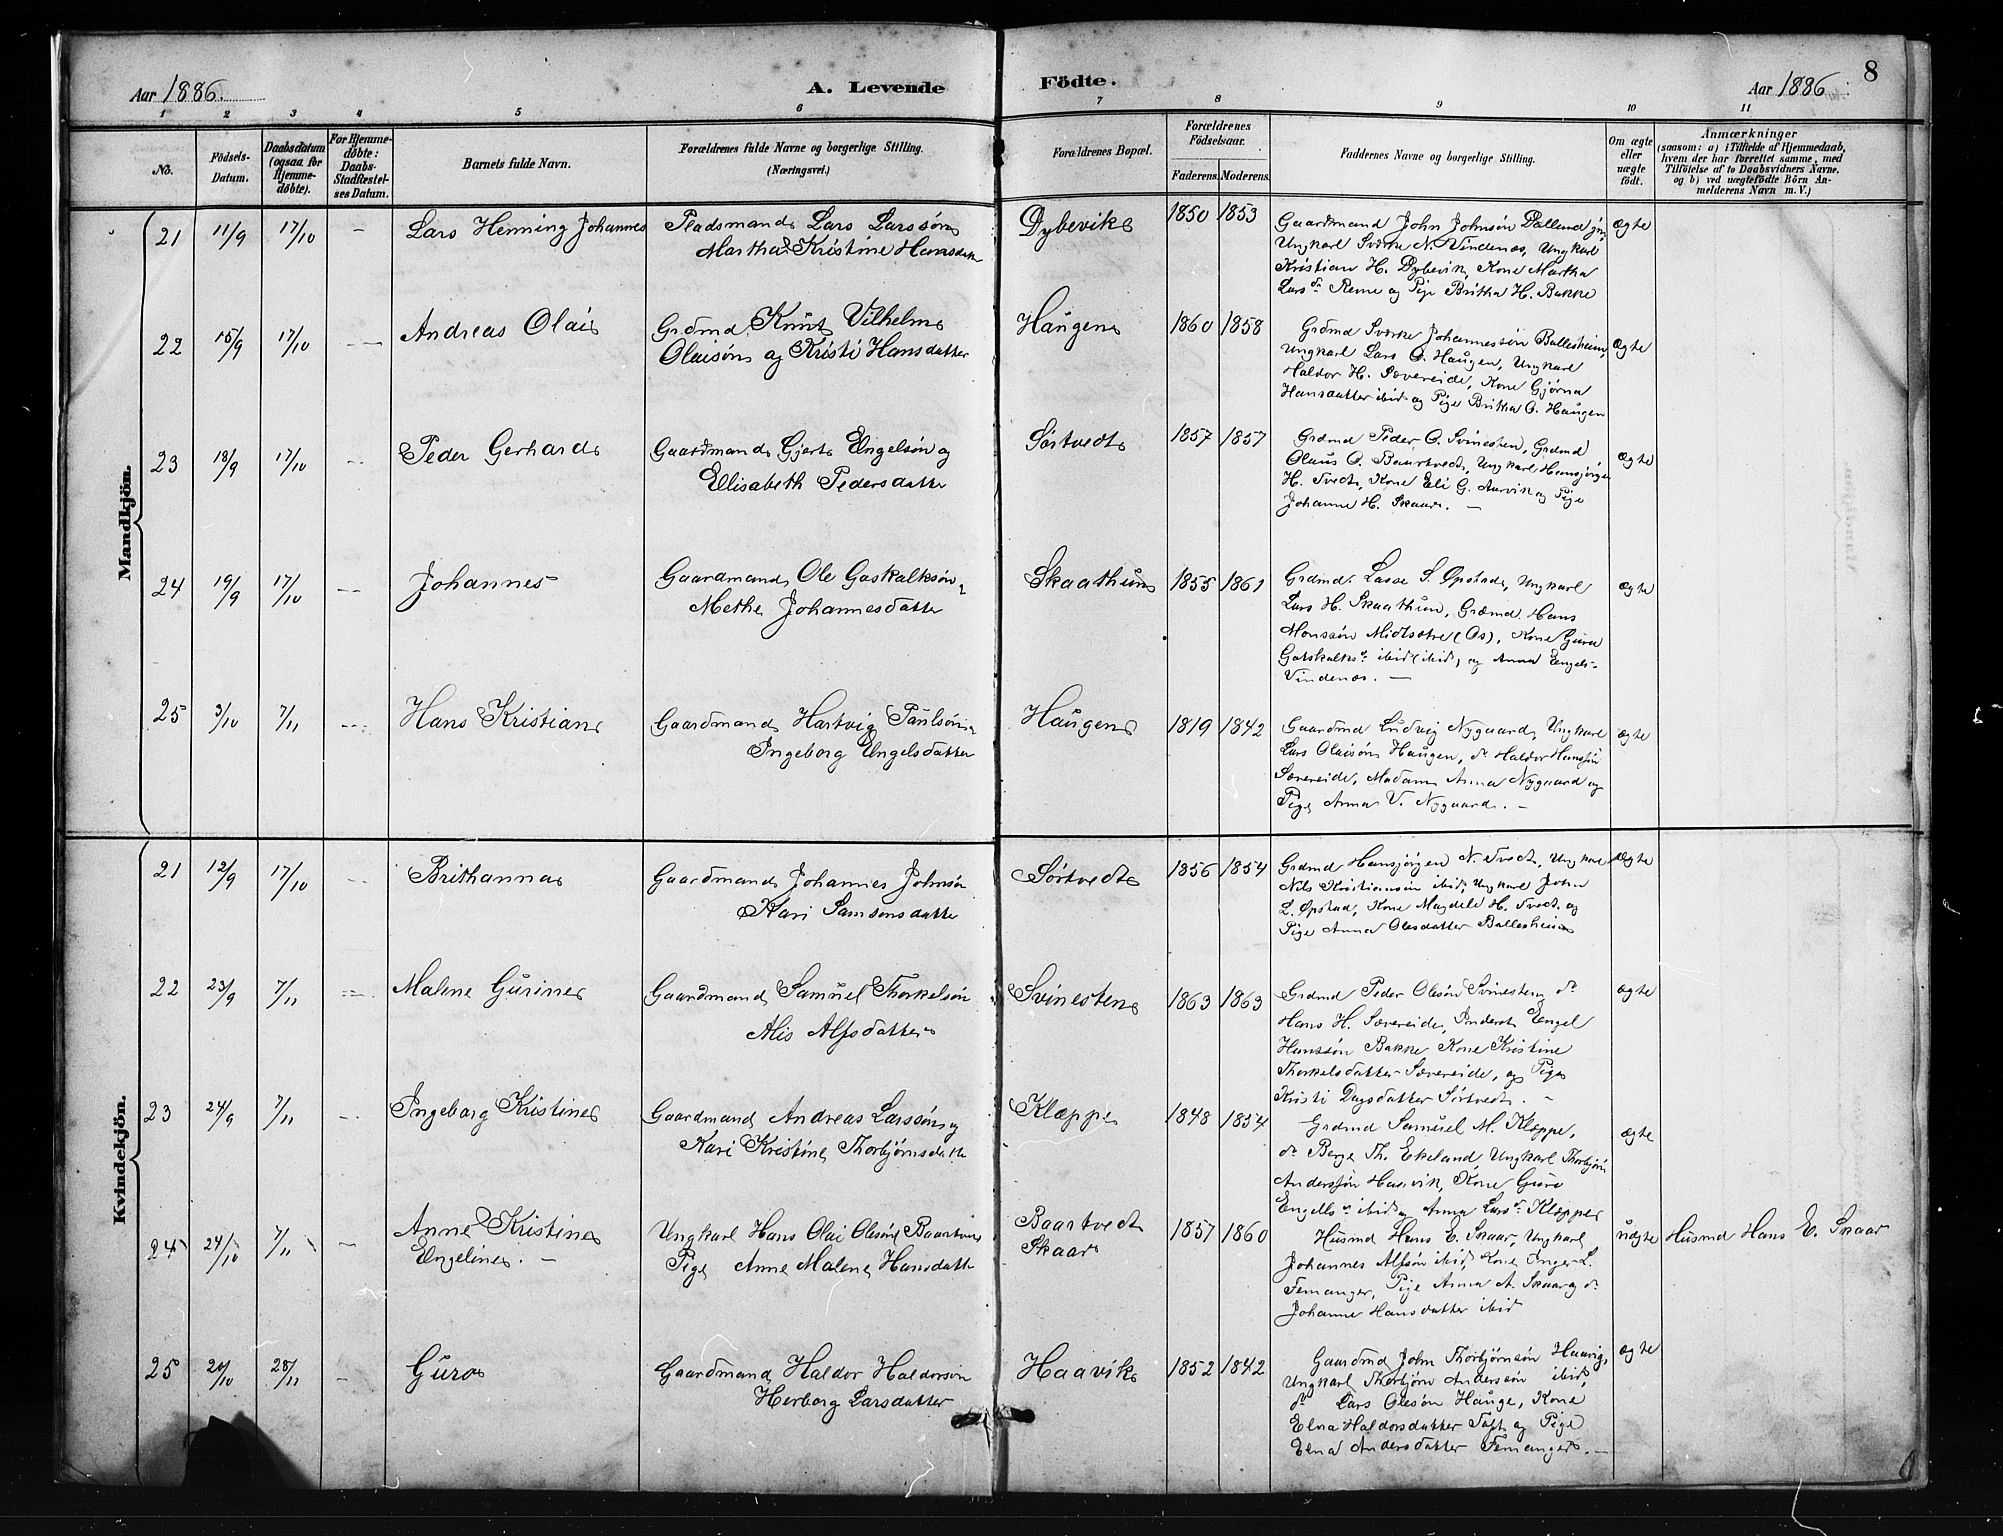 Aar 1886. A. Levende Födte. Aar 1886 8
1 2 3 4 5 6 7 8 9 10 11
No.
Födsels-
Datum.
Daabsdatum
(ogsaa for
Hjemme-
döbte).
For Hjemme-
döbte:
Daabs-
Stadfæstel-
ses Datum.
Barnets fulde Navn.
Forældrenes fulde Navne og borgerlige Stilling.
(Næringsvei.)
Forældrenes Bopæl.
Forældrenes
Födselsaar.
Faderens. Moderens.
Faddernes Navne og borgerlige Stilling.
Om ægte
eller
uægte
födt.
Anmærkninger
(saasom: a) i Tilfælde af Hjemmedaab,
hvem der har forrettet samme, med
Tilföielse af to Daabsvidners Navne,
og b) ved uægtefödte Börn An-
melderens Navn m. V.)
Mandkjön.
21 11/9 17/10 — Lars Henning Johannes
Pladsmand Lars Larssøn
Martha Kristine Hansdatter
Dybevik 1850 1853
Gaardmand John Johnsøn Dalland
Ungkarl Sværke N. Vindenæs, Ungkarl
Kristian H. Dybevik, Kone Martha
Larsdr Reme og Pige Britha H. Bakke
ægte
22 15/9 17/10 — Andreas Olai
Grdmd Knut Vilhelm
Olaisøn og Kristi Hansdatter
Haugen 1860 1858
Grdmd Sværke Johannessøn Ballesheim,
Ungkarl Lars O. Haugen, Ungkarl
Haldor H. Sævereide, Kone Gjørna
Hansdatter ibid og Pige Britha O. Haugen
ægte
23 18/9 17/10 — Peder Gerhard
Gaardmand Gjert Engelsøn og
Ellisabeth Pedersdatter
Sørtvedt 1857 1857
Grdmd Peder O. Svinesten, Grdmd
Olaus O. Baartvedt, Ungkarl Hansjørgen
H. Tvedt, Kone Eli G. Aarvik og Pige
Johanne H. Skaar. —
ægte
24 19/9 17/10 — Johannes
Gaardmand Ole Gaskalksøn
Methe Johannesdatter
Skaathun 1855 1861
Grdmd. Lasse S. Opstad, Ungkarl
Lars H. Skaathun, Grdmd. Hans
Monssøn Midtsætre (Os), Kone Guro
Gatskalksdr ibid (ibid) og Anna Engels-
Vindenæs. —
ægte
25 3/10 7/11 — Hans Kristian
Gaardmand Hartvig Paulsøn
Ingeborg Engelsdatter
Haugen 1819 1842
Gaardmd Ludvig Nygaard, Ungkarl
Lars Olaisøn Haugen, do Haldor Hanssøn
Sævereide, Madam Anna Nygaard og
Pige Anna V. Nygaard. —
ægte
Kvindekjön.
21 12/9 17/10 — Brithanna
Gaardmand Johannes Johnsøn
Kari Samsonsdatter
Sørtvedt 1856 1854
Grdmd Hansjørgen N. Tvedt, Ungkarl
Nils Kristiansøn ibid, Ungkarl John
L. Opstad, Kone Magdele H. Tvedt og
Pige Anna Olesdatter Ballesheim
ægte
22 23/9 7/11 — Malene Gurine
Gaardmand Samuel Thorkelsøn
Alis Alfsdatter
Svinesten 1863 1863
Grdmd Peder Olesøn Svinesten, do
Hans H. Sævereide, Inderst Engel
Hanssøn Bakke Kone Kristine
Thorkelsdatter Sævereide, og Pige
Kristi Dagsdatter Sørtvedt. —
ægte
23 24/9 7/11 — Ingeborg Kristine
Gaardmand Andreas Larssøn og
Kari Kristine Thorbjørnsdatter
Kleppe 1848 1854
Grdmd Samuel M. Klæppe,
do Berge Th. Ekeland, Ungkarl Thorbjørn
Anderssøn Haavik, Kone Guro
Engelsdr ibid og Anna Larsdr Klæppe
ægte
24 24/10 7/11 — Anne Kristine
Engeline. —
Ungkarl Hans Olai Olesøn Baartvedt
Pige Anne Malene Hansdatter
Baartvedt
Skaar
1857 1860
Husmd Hans E. Skaar, Ungkarl
Johannes Alfsøn ibid, Kone Inger L.
Femanger, Pige Anna A. Skaar og do
Johanne Hansdatter ibid
uægte Husmd Hans E. Skaar
25 20/10 28/11 — Guro
Gaardmand Haldor Haldorsøn
Herborg Larsdatter
Haavik 1852 1842
Gaardmd John Thorbjørnsøn Haavig,
Ungkarl Thorbjørn Andersøn ibid,
do Lars Olesøn Hauge, Kone
Elna Haldorsdatter Toft og Pige
Elna Andersdatter Femanger. —
ægte